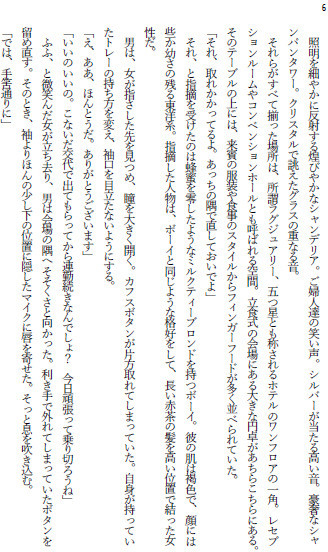 6
照明を細やかに反射する煌びやかなシャンデリア。ご婦人達の笑い声。シルバーが当たる高い音。豪奢なシャ
ンパンタワー。クリスタルで誂えたグラスの重なる音。
それらがすべて揃った場所は、所謂ラグジュアリー、五つ星とも称されるホテルのワンフロアの一角。レセプ
ションルームやコンベンションホールとも呼ばれる空間。立食式の会場にある大きな円卓があちらこちらにある。
そのテーブルの上には、来賓の服装や食事のスタイルからフィンガーフードが多く並べられていた。
「それ、取れかかってるよ。あっちの隅で直しておいでよ」
それ、と指摘を受けたのは蜂蜜を零したようなミルクティーブロンドを持つボーイ。彼の肌は褐色で、顔には
些か幼さの残る東洋系。指摘した人物は、ボーイと同じような格好をして、長い赤茶の髪を高い位置で結った女
性だ。
男は、女が指さした先を見つめ、瞳を大きく開く。カフスボタンが片方取れてしまっていた。自身が持ってい
たトレーの持ち方を変え、袖口を目立たないようにする。
「え、ああ、ほんとうだ。ありがとうございます」
「いいのいいの。こないだ交代で出てもらってから連勤続きなんでしょ？　今日頑張って乗り切ろうね」
ふふ、と微笑んだ女が立ち去り、男は会場の隅へそそくさと向かった。利き手で外れてしまっていたボタンを
留め直す。そのとき、袖よりほんの少し下の位置に隠したマイクに唇を寄せた。そっと息を吹き込む。
「では、手筈通りに」